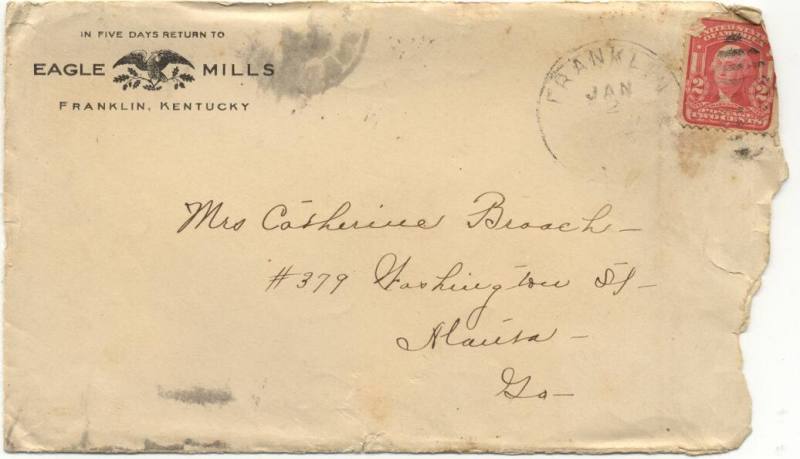 IN FIVE DAYS RETURN TO
EAGLE MILLS
FRANKLIN, KENTUCKY
FRANKLIN
JAN
2
UNITED STATES
OF AMERICA
2 2
POSTAGE
TWO CENTS
Mrs Catherine Broach
#379 Washington St
Atlanta
Ga